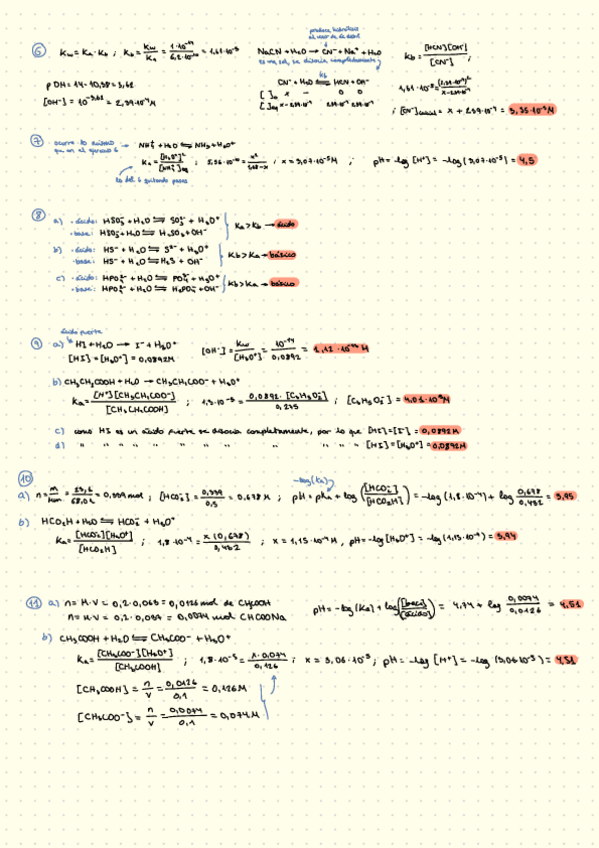 6 Kw = Ka · Kb ; Kb = Kw/Ka = 1·10⁻¹⁴/6,2·10⁻¹⁰ = 1,61·10⁻⁵
produce hidrólisis
NaCN + H₂O → CN⁻ + Na⁺ + H₂O
es una sal, se disocia completamente
Kb = [HCN][OH⁻]/[CN⁻] ;
pOH = 14 - 10,38 = 3,62
[OH⁻] = 10⁻³,⁶² = 2,39·10⁻⁴M
CN⁻ + H₂O ⇌ HCN + OH⁻
[ ]₀ x - 0 0
; [CN⁻]inicial = x + 2,39·10⁻⁴ = 3,35·10⁻³M
7 · ocurre lo mismo que en el ejercicio 6 → NH₄⁺ + H₂O ⇌ NH₃ + H₃O⁺
Ka = [H₃O⁺]²/[NH₄⁺]eq ; 5,56·10⁻¹⁰ = x²/1,68-x ; x = 3,07·10⁻⁵M ; pH = -log [H⁺] = -log (3,07·10⁻⁵) = 4,5
8
a) · ácido: HSO₃⁻ + H₂O ⇌ SO₃²⁻ + H₃O⁺
· base: HSO₃⁻ + H₂O ⇌ H₂SO₃ + OH⁻
Ka > Kb → ácido
b) · ácido: HS⁻ + H₂O ⇌ S²⁻ + H₃O⁺
· base: HS⁻ + H₂O ⇌ H₂S + OH⁻
Kb > Ka → básico
c) · ácido: HPO₄²⁻ + H₂O ⇌ PO₄³⁻ + H₃O⁺
· base: HPO₄²⁻ + H₂O ⇌ H₂PO₄⁻ + OH⁻
Kb > Ka → básico
ácido fuerte
9 a) HI + H₂O → I⁻ + H₃O⁺
[HI] = [H₃O⁺] = 0,0892M
[OH⁻] = Kw/[H₃O⁺] = 10⁻¹⁴/0,0892 = 1,12·10⁻¹³ M
b) CH₃CH₂COOH + H₂O → CH₃CH₂COO⁻ + H₃O⁺
Ka = [H⁺][CH₃CH₂COO⁻]/[CH₃CH₂COOH] ; 1,3·10⁻⁵ = 0,0892·[C₃H₅O₂⁻]/0,275 ; [C₃H₅O₂⁻] = 4,01·10⁻⁵M
c) como HI es un ácido fuerte se disocia completamente, por lo que [HI] = [I⁻] = 0,0892M
d) " " " " " " " " " " [HI] = [H₃O⁺] = 0,0892M
10
-log(Ka)
a) n = m/Mm = 23,1/68,01 = 0,339 mol ; [HCO₂⁻] = 0,339/0,5 = 0,678 M ; pH = pKa + log ([HCO₂⁻]/[HCO₂H]) = -log (1,8·10⁻⁴) + log 0,678/0,432 = 3,95
b) HCO₂H + H₂O ⇌ HCO₂⁻ + H₃O⁺
Ka = [HCO₂⁻][H₃O⁺]/[HCO₂H] ; 1,8·10⁻⁴ = x(0,678)/0,432 ; x = 1,15·10⁻⁴M , pH = -log [H₃O⁺] = -log (1,15·10⁻⁴) = 3,94
11 a) n = M·V = 0,2·0,063 = 0,0126 mol de CH₃COOH
n = M·V = 0,2·0,037 = 0,0074 mol CH₃COONa
pH = -log (Ka) + log([base]/[ácido]) = 4,74 + log 0,0074/0,0126 = 4,51
b) CH₃COOH + H₂O ⇌ CH₃COO⁻ + H₃O⁺
Ka = [CH₃COO⁻][H₃O⁺]/[CH₃COOH] ; 1,8·10⁻⁵ = x·0,074/0,126 ; x = 3,06·10⁻⁵ ; pH = -log [H⁺] = -log (3,06·10⁻⁵) = 4,51
[CH₃COOH] = n/V = 0,0126/0,1 = 0,126M
[CH₃COO⁻] = n/V = 0,0074/0,1 = 0,074M